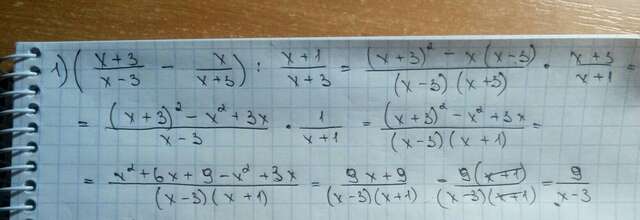 1) ( (x+3)/(x-3) - x/(x+3) ) : (x+1)/(x+3) = ((x+3)² - x(x-3))/((x-3)(x+3)) · (x+3)/(x+1) =
= ((x+3)² - x² + 3x)/(x-3) · 1/(x+1) = ((x+3)² - x² + 3x)/((x-3)(x+1)) =
= (x² + 6x + 9 - x² + 3x)/((x-3)(x+1)) = (9x+9)/((x-3)(x+1)) = 9(x+1)/((x-3)(x+1)) = 9/(x-3)